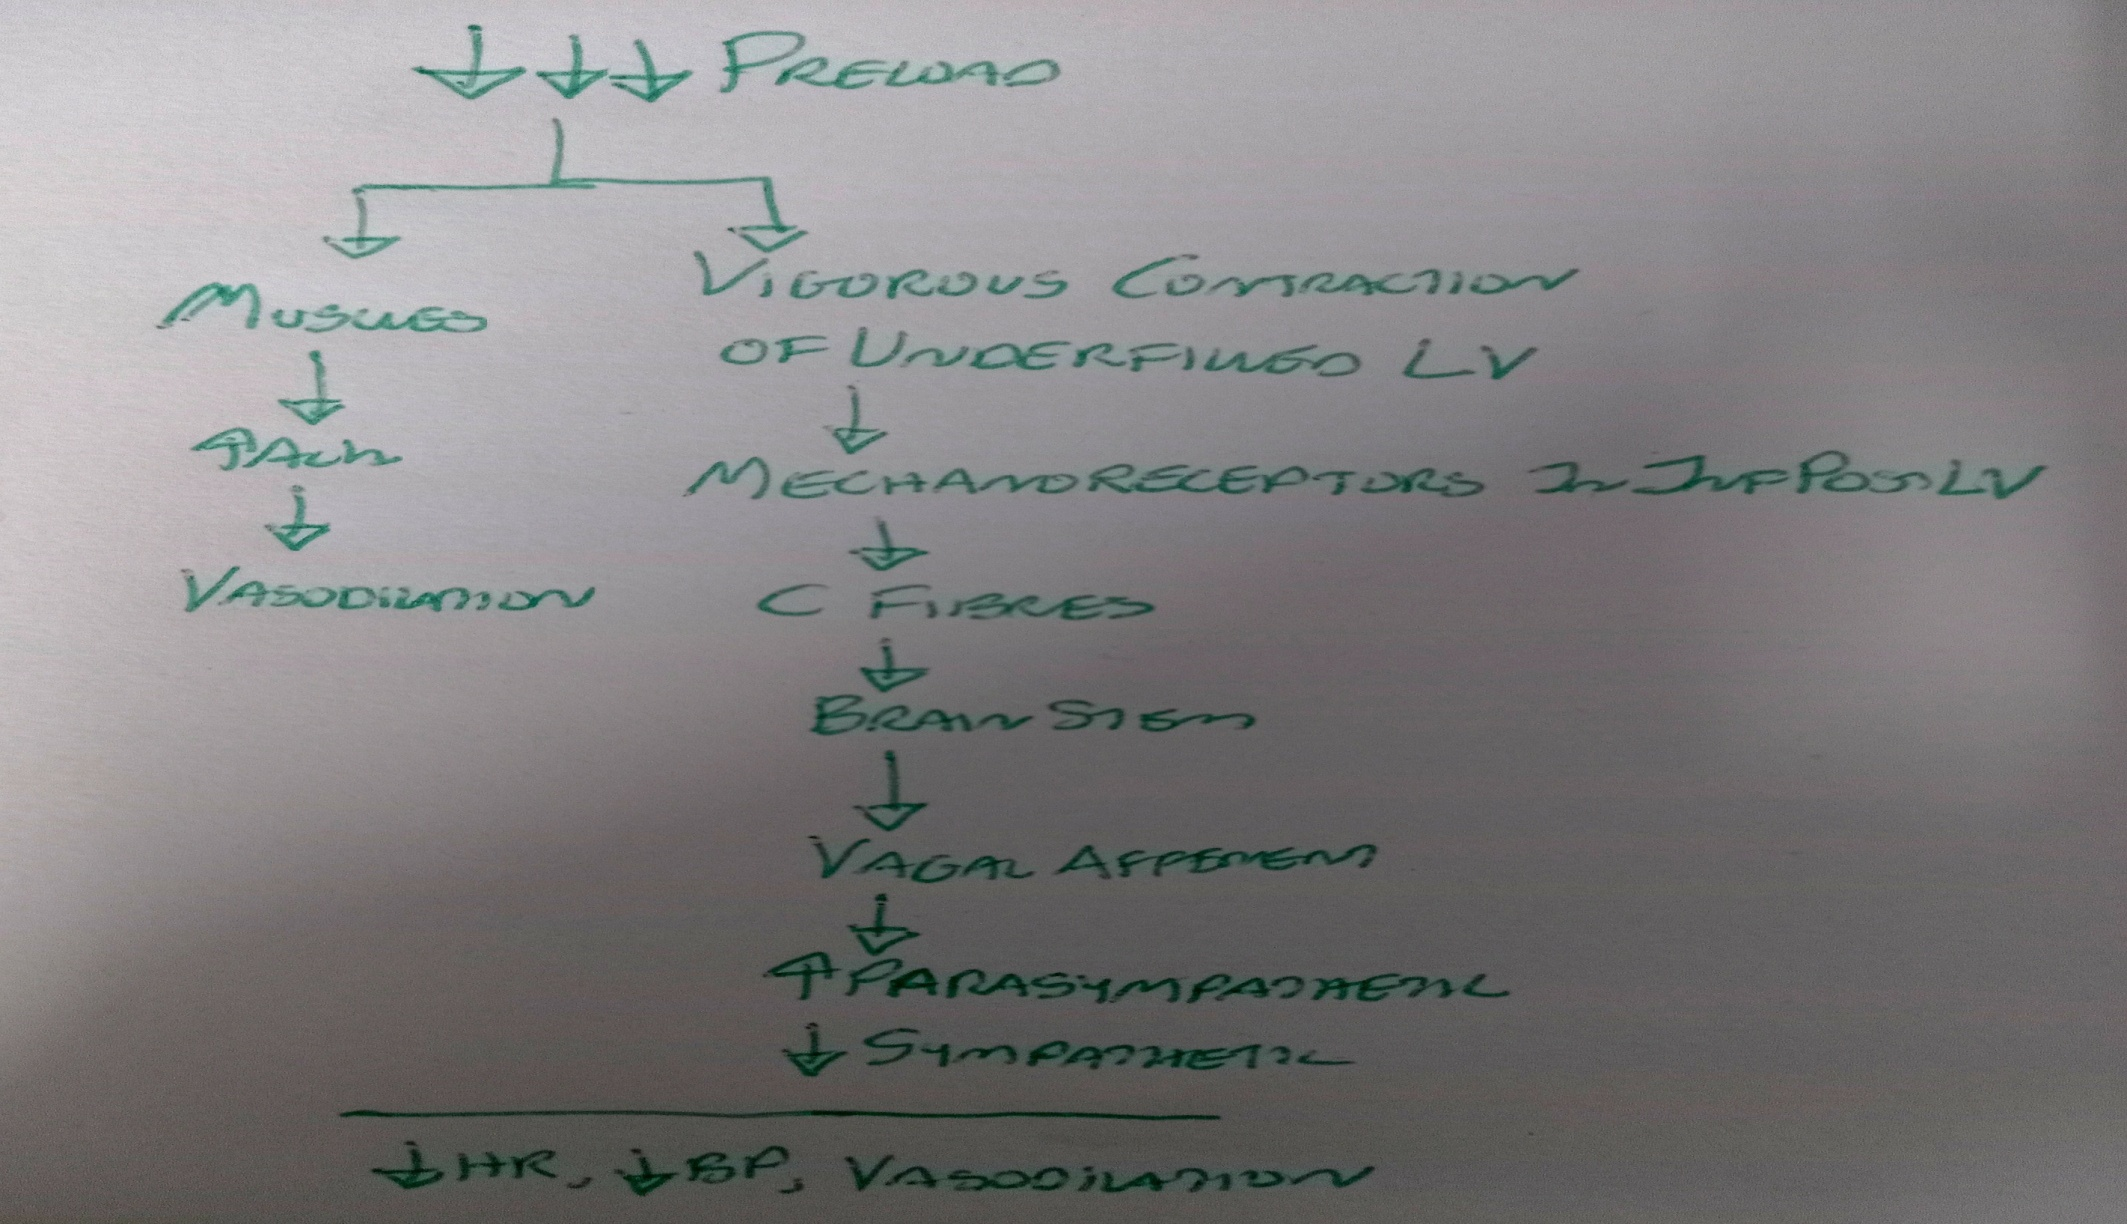 ↓↓↓ PRELOAD
MUSCLES
VIGOROUS CONTRACTION
OF UNDERFILLED LV
↑ACh
MECHANORECEPTORS In INF POST LV
VASODILATION
C FIBRES
BRAIN STEM
VAGAL AFFERENT
↑PARASYMPATHETIC
↓ SYMPATHETIC
↓HR, ↓BP, VASODILATION